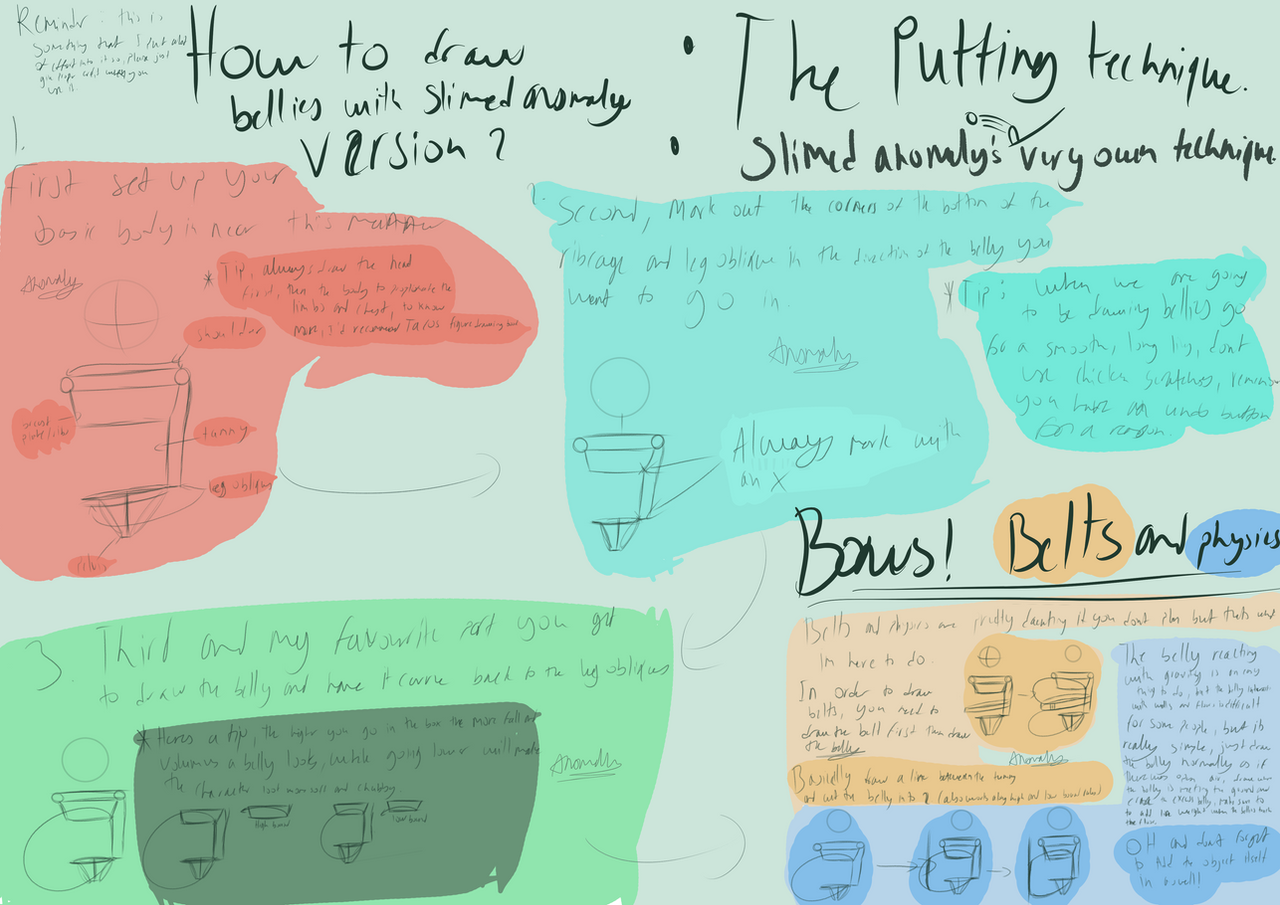 Reminder: this is
something that I put alot
of effort into it so, please just
give proper credit when you
use it.
How to draw
bellies with Slimed anomaly
Version 2
• The Putting technique.
• Slimed anomaly's very own technique.
1.
First set up your
basic body in near this manner
Anomaly
* Tip, always draw the head
first, then the body to the
limbs and chest, to know
more, I'd recommend figure drawing
shoulder
tummy
leg obliques
pelvis
2. Second, Mark out the corners of the bottom of the
ribcage and leg oblique in the direction of the belly you
want to go in.
Anomaly
Always mark with
an X
* Tip: when we are going
to be drawing bellies go
for a smooth, long line, dont
use chicken scratches, remember
you have an undo button
for a reason.
3. Third and my favourite part you get
to draw the belly and have it curve back to the leg obliques
* Heres a tip, the higher you go in the box the more full and
volumus a belly looks, while going lower will make
the character look more soft and chubby.
High bound
low bound
Anomaly
Bonus! Belts and physics
Belts and physics are pretty daunting if you dont plan but thats what
Im here to do.
In order to draw
belts, you need to
draw the belt first then draw
the belly
Anomaly
Basically draw a line between the tummy
and cut the belly into 2 (also works along high and low bound rules)
The belly reacting
with gravity is an easy
thing to do, but the belly interact
with walls and floor is difficult
for some people, but its
really simple, just draw
the belly normally as if
there was open air, draw where
the belly is meeting the ground and
erase the excess belly, make sure
to add
the floor.
OH and dont forget
to Add the object itself
as well!